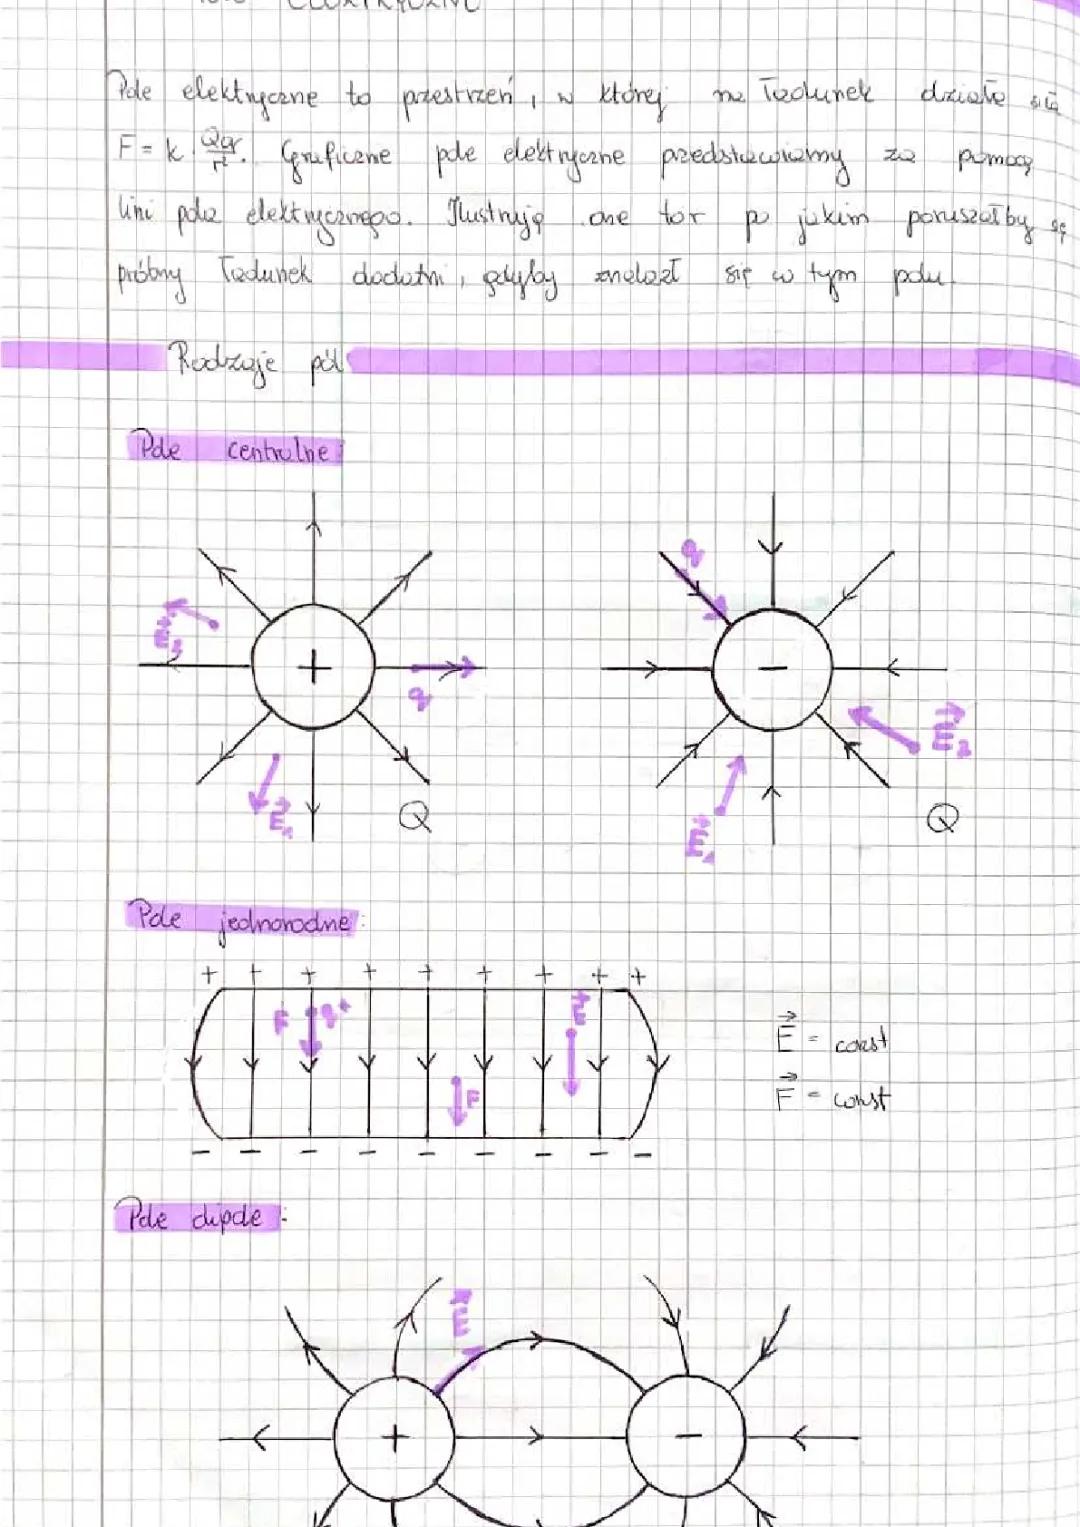 Pole elektryczne to przestrzeń, w której na ładunek działa siła
F = k · Qq/r². Graficzne pole elektryczne przedstawiamy za pomocą
lini pola elektrycznego. Ilustrują one tor po jakim poruszałby się
próbny ładunek dodatni, gdyby znalazł się w tym polu.
Rodzaje pól
Pole centralne:
+ q E₃ E₁ Q
− q E₂ E₁ Q
Pole jednorodne:
+ + + + + + + + +
F q⁺ E
F
E = const
F = const
− − − − − − − − −
Pole dipole:
E
+ −